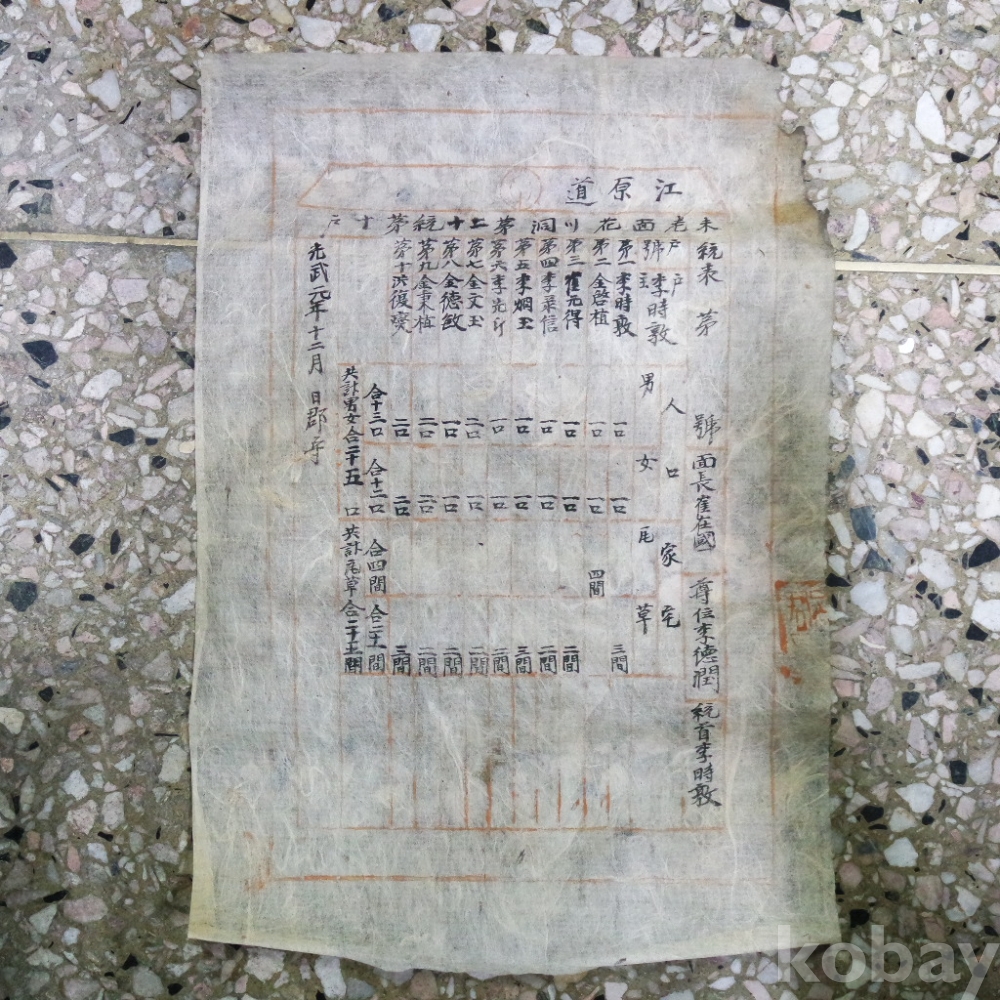 江原道
未老面花川洞第二十統第十戶
統表 第 號 面長崔在國 尊位李德潤 統首李時敦
戶 人口 家宅
戶號主李時敦 男 女 瓦 草
第一李時敦 一口 一口 三間
第二金啓植 一口 一口 四間
第三崔元得 一口 一口 二間
第四李 信 一口 一口 二間
第五李炯玉 一口 一口 三間
第六李 一口 一口 二間
第七金文玉 二口 一口 二間
第八金德敏 一口 一口 二間
第九金秉植 二口 二口 二間
第十洪復燮 二口 二口 三間
合十三口 合十二口 合四間 合二十一間
共計男女合二十五口 共計瓦草合二十五間
光武元年十二月 日郡守
kobay